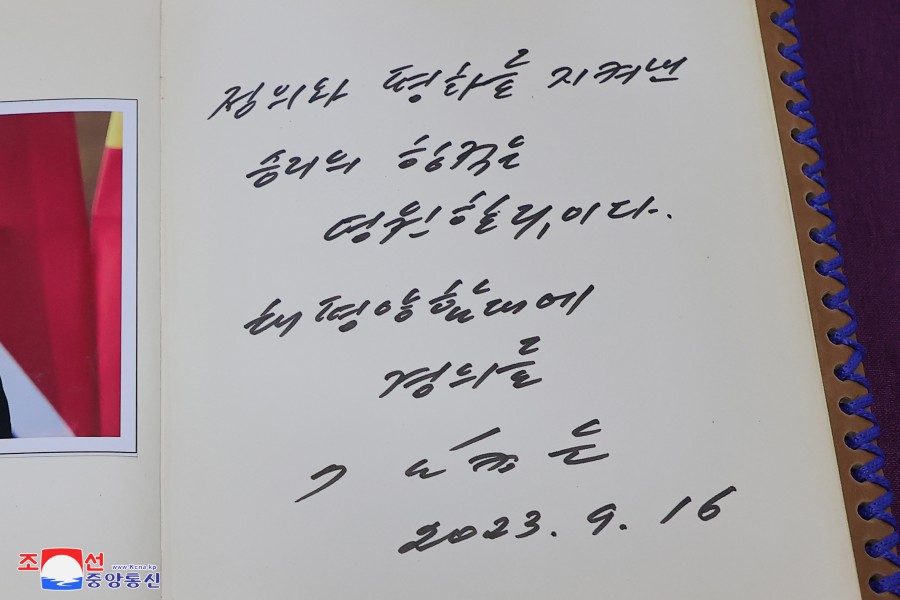 정의와 평화를 지켜낸
승리의 항적은
영원할것이다.
태평양함대에
경의를
김정은
2023. 9. 16
조선
www.kcna.kp
중앙통신